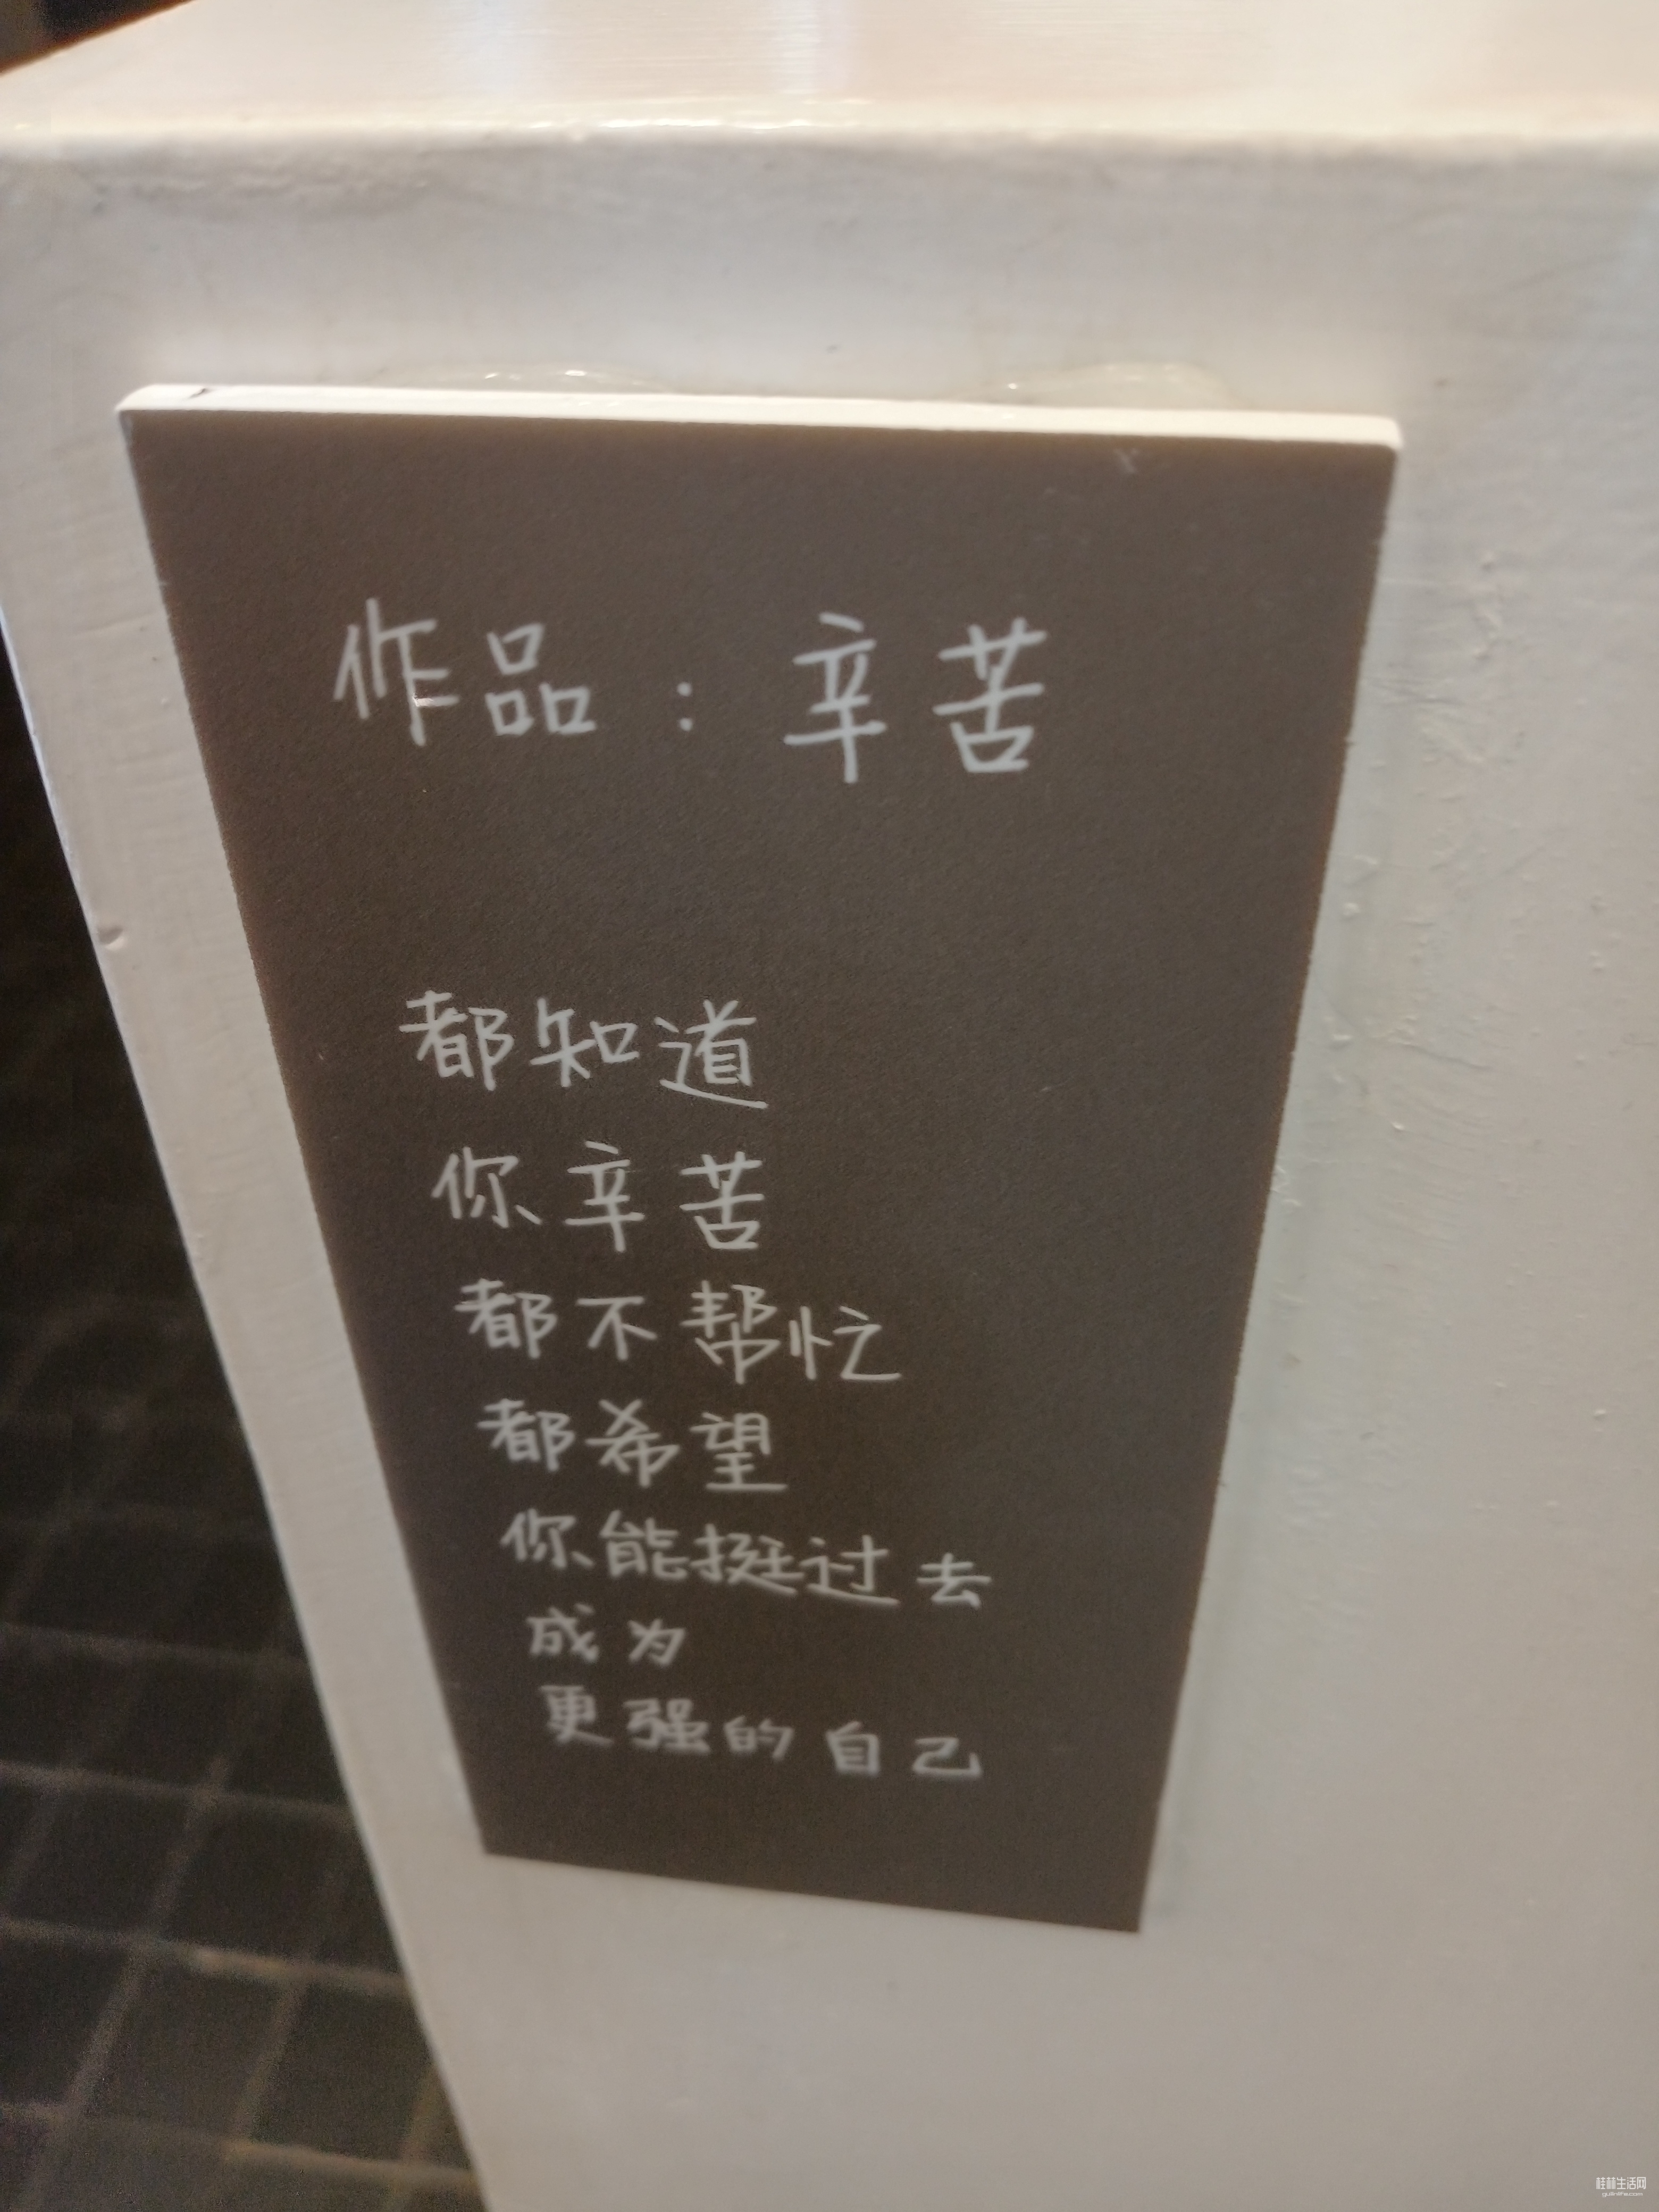 作品：辛苦
都知道
你辛苦
都不帮忙
都希望
你能挺过去
成为
更强的自己
桂林生活网